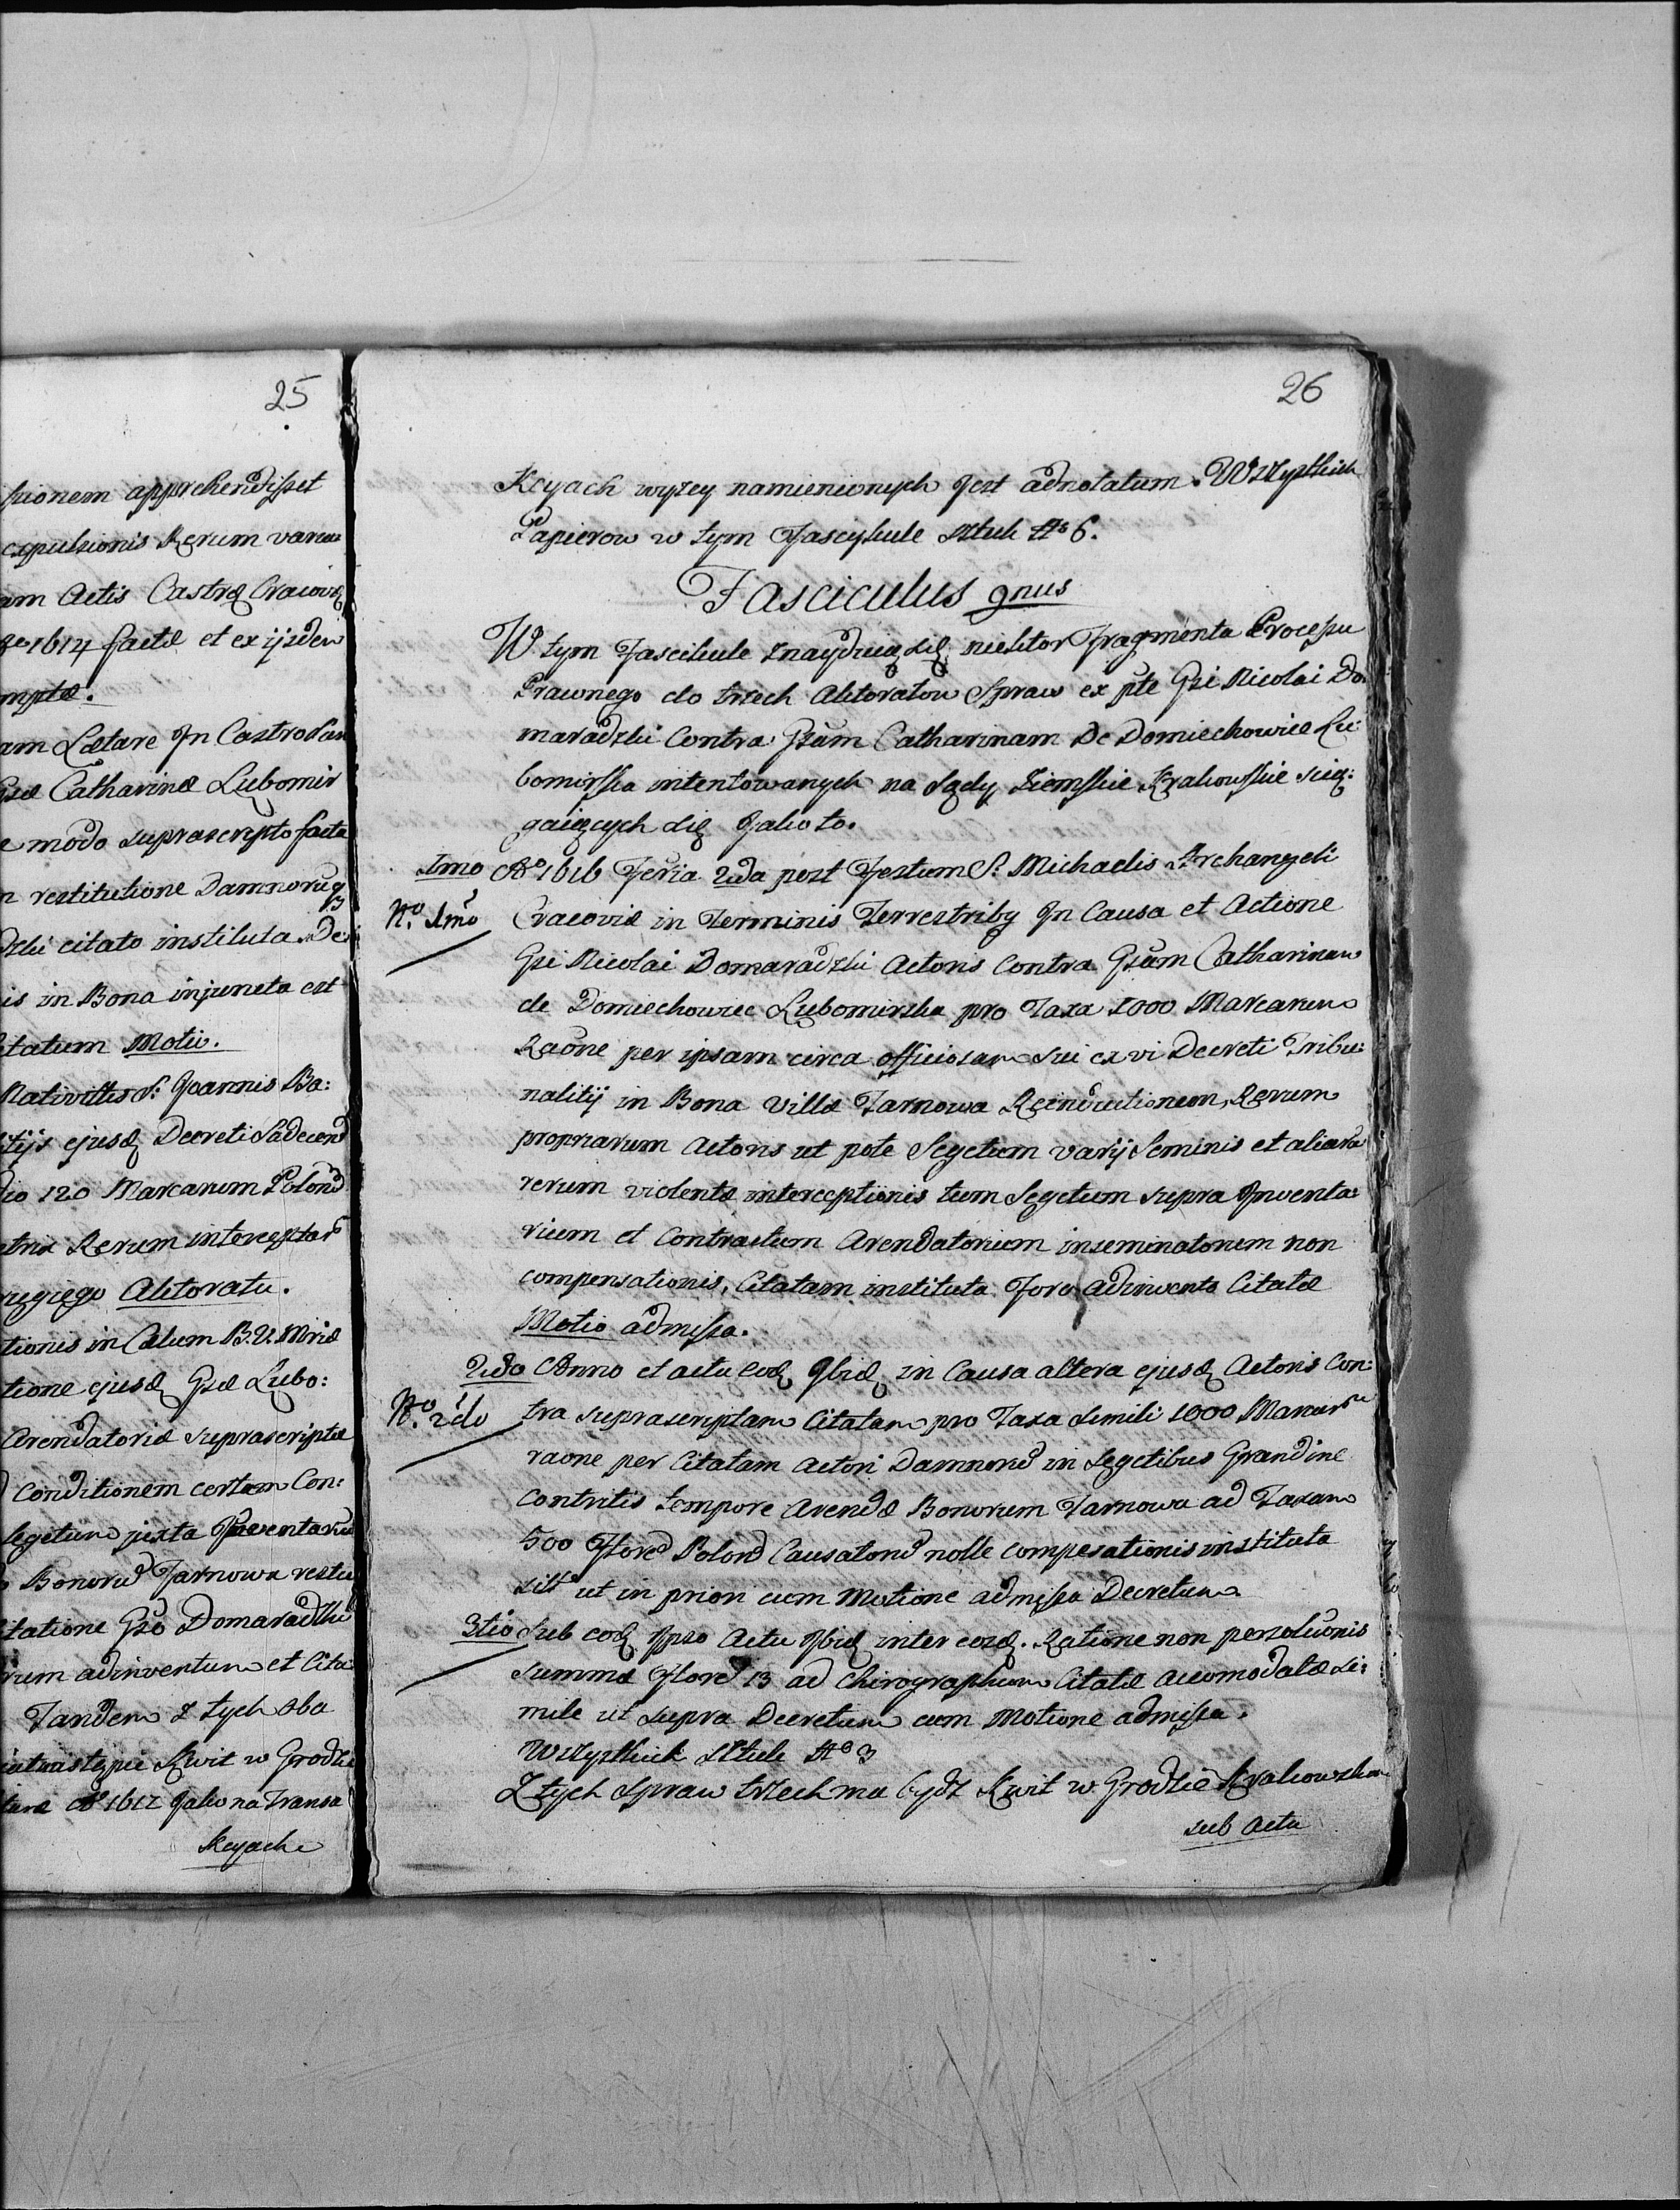 25
ssionem apprehendisset
expulsionis Rerum varia
am Actis Castr Cracov
1614 factæ et ex ijsdem
mptæ.
am Lætare In Castro San
Gsæ Catharinæ Lubomir
e modo suprascripto facta
n restitutione Damnorūq
dzki citato instituta De
is in Bona injuncta est
tatum Motio.
Nativittis S. Joannis Ba:
tijs ejusd Decreti Sadecen
io 120 Marcarum Polon
Rerum intercepta
rugiego Aktoratu.
tionis in Cælum B. V. Mriæ
tione ejusd Gsæ Lubo:
Arendatoriæ suprascriptæ
Conditionem certam Con:
segetum juxta Inventariū
Bonorū Jarnowa restu
tatione Gso Domaradzki
rum adinventum et Cita
Tandem z tych oba
nastąpił Kwit w Grodzie
tare Aº 1612 jako na Transa
kcyach
26
Kcyach wyzey namienionych jest adnotatum. Wszystkich
Papierow w tym Fascykule sztuk Nº 6.
Fasciculus 9nus
W tym Fascikule znayduią się niektor Fragmenta Processu
Prawnego do trzech Aktoratow Spraw ex pte Gsi Nicolai Do:
maradzki Contra Gsam Catharinam De Domiechowice Lu:
bomirska intentowanych na Sądy Ziemskie Krakowskie sciąg:
gaiących się Jako to.
1mo Aº 1616 Feria 2da post Festum S. Michaelis Archangeli
Nº 1mo Cracoviæ in Terminis Terrestribg In Causa et Actione
Gsi Nicolai Domaradzki Actoris Contra Gsam Catharinam
de Domiechowiec Lubomirska pro Taxa 1000 Marcarum
Raōne per ipsam circa officiosam sui ex vi Decreti Tribu:
nalitij in Bona Villæ Jarnowa Reinductionem, Rerum
propriarum Actoris ut pote Segetum varij Seminis et aliarū
rerum violentæ interceptionis tum Segetum supra Inventa:
rium et Contractum Arendatorium inseminatorum non
compensationis, Citatam instituta Foro adinvento Citatæ
Motio admissa.
2do Anno et actu eod Ibid in Causa altera ejusd Actoris Con:
Nº 2do tra suprascriptam Citatam pro Taxa simili 1000 Marcarū
raōne per Citatam Actori Damnorū in Segetibus Grandine
Contritis tempore Arendæ Bonorum Jarnowa ad Taxam
500 Flore Polon Causatorū nolle compesationis instituta
silt ut in priori cum Motione admissa Decretum.
3tio Sub eod Ipso Actu Ibid inter eosd. Ratione non persolutionis
Summæ Flore 13 ad Chirographum Citatæ accomodatæ si:
mile ut supra Decretum cum Motione admissa.
Wszystkich sztuk Nº 3
Z tych Spraw trzech ma bydz Kwit w Grodzie Krakowskim
sub Actu